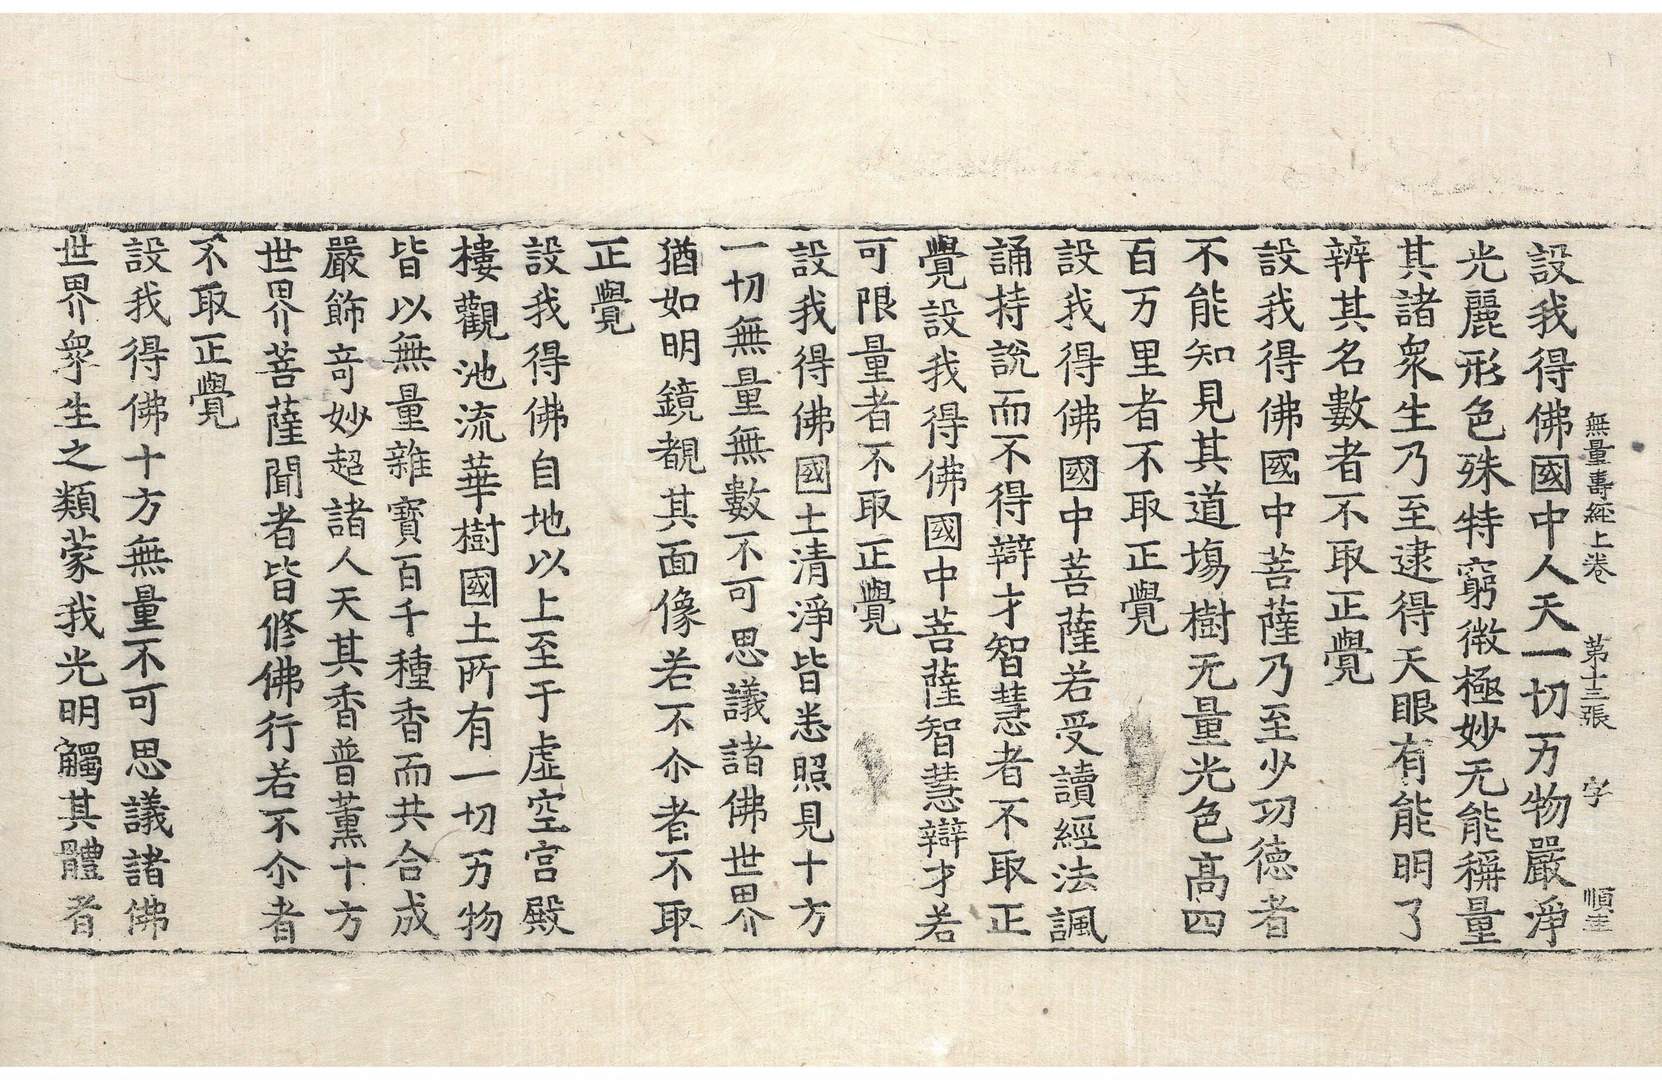 無量壽經上卷　第十三張　字　順圭
設我得佛國中人天一切万物嚴淨
光麗形色殊特窮微極妙无能稱量
其諸衆生乃至逮得天眼有能明了
辨其名數者不取正覺
設我得佛國中菩薩乃至少功德者
不能知見其道塲樹无量光色高四
百万里者不取正覺
設我得佛國中菩薩若受讀經法諷
誦持說而不得辯才智慧者不取正
覺設我得佛國中菩薩智慧辯才若
可限量者不取正覺
設我得佛國土清淨皆悉照見十方
一切無量無數不可思議諸佛世界
猶如明鏡覩其面像若不尒者不取
正覺
設我得佛自地以上至于虛空宮殿
樓觀池流華樹國土所有一切万物
皆以無量雜寶百千種香而共合成
嚴飾竒妙超諸人天其香普薰十方
世界菩薩聞者皆修佛行若不尒者
不取正覺
設我得佛十方無量不可思議諸佛
世界衆生之類蒙我光明觸其體者